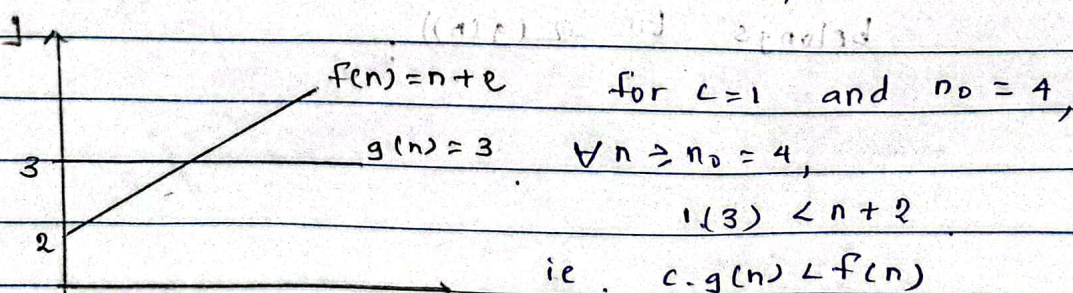 f(n) = n + e for c = 1 and n₀ = 4,
g(n) = 3 ∀ n ≥ n₀ = 4,
3
1.(3) < n + 2
2
ie. c.g(n) < f(n)